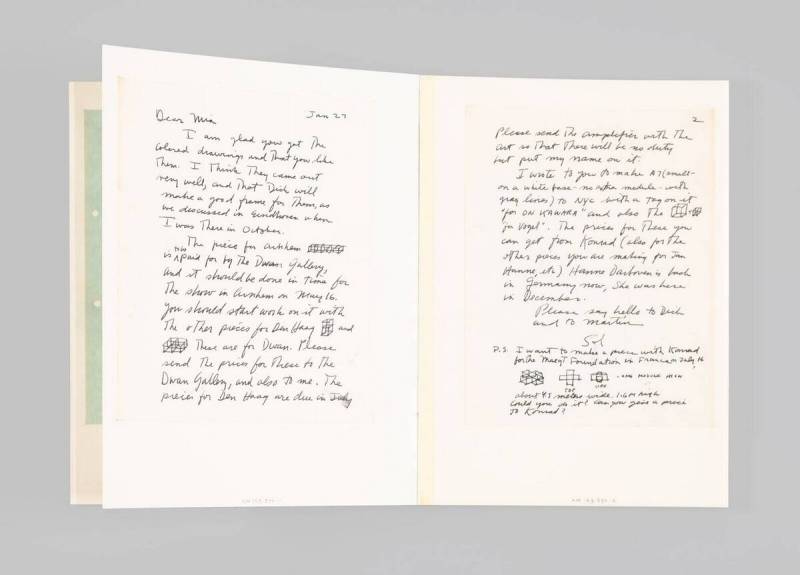 Dear Mia Jan 27
I am glad you got the
colored drawings and that you like
them. I think they came out
very well, and that Dick will
make a good frame for them, as
we discussed in Eindhoven when
I was there in October.
The piece for Arnhem
is now paid for by the Dwan Gallery,
and it should be done in time for
the show in Arnhem on May 16.
You should start work on it with
the other pieces for Den Haag and
These are for Dwan. Please
send the prices for these to the
Dwan Gallery, and also to me. The
pieces for Den Haag are due in July
2
Please send the amplifier with the
art so that there will be no duty
but put my name on it.
I wrote to you to make A7 (small-
on a white base - no extra module - with
gray lines) to NYC with a tag on it
"for ON KAWARA" and also the
"for Vogel". The prices for these you
can get from Konrad (also for the
other pieces you are making for Jan
Hanne, etc) Hanne Darboven is back
in Germany now, She was here
in December.
Please say hello to Dick
and to Martin
Sol
P.S. I want to make a piece with Konrad
for the Maeght Foundation in France on July 16
TOP SIDE - ONE MODULE HIGH
about 4.5 meters wide. 1.60 M high
Could you do it? Can you give a price
to Konrad?